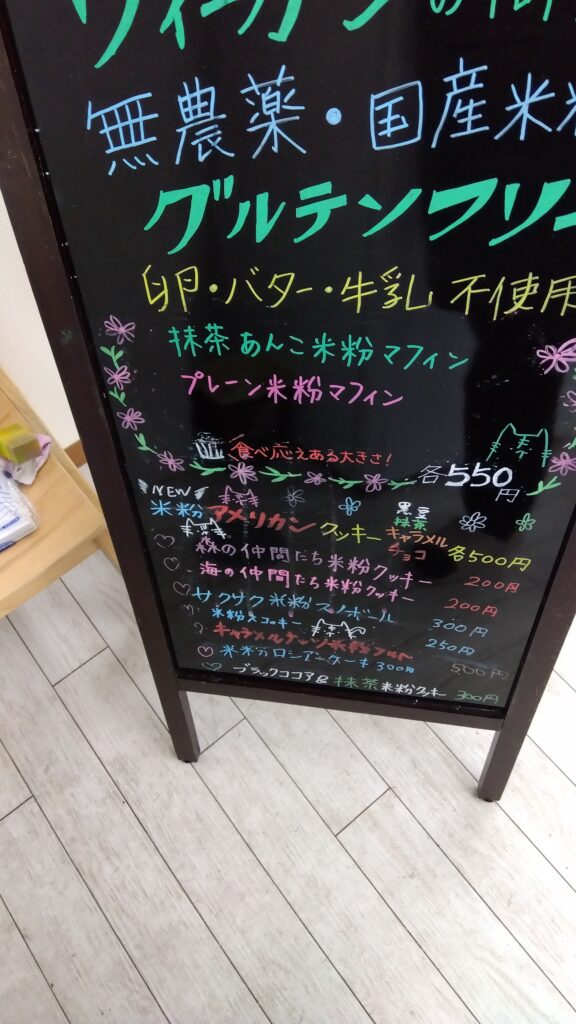 ヴィーガンの
無農薬・国産米
グルテンフリー
卵・バター・牛乳 不使用
抹茶あんこ米粉マフィン
プレーン米粉マフィン
食べ応えある大きさ!
各550円
NEW
米粉アメリカンクッキー 黒豆 抹茶 キャラメル チョコ 各500円
森の仲間たち米粉クッキー 200円
海の仲間たち米粉クッキー 200円
サクサク米粉スノボール 300円
米粉 クッキー 250円
キャラメルナッツ米粉 500円
米粉ロシアンケーキ 300円
ブラックココア& 抹茶米粉クッキー 300円